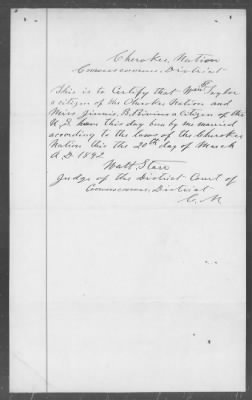 Cherokee Nation
Cooweescoowee District
This is to Certify that Wm Taylor
a citizen of the Cherokee Nation and
Miss Jinnie. B. a citizen of the
U, S, have this day bin by me married
according to the laws of the Cherokee
Nation this the 20th day of March
A. D. 1892
Watt Starr
Judge of the District Court of
Cooweescoowee, District
C. N